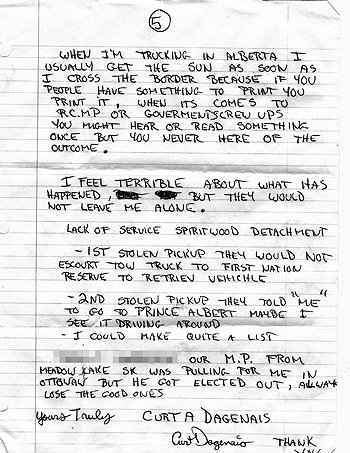 5
WHEN I'M TRUCKING IN ALBERTA I
USUALLY GET THE SUN AS SOON AS
I CROSS THE BORDER BECAUSE IF YOU
PEOPLE HAVE SOMETHING TO PRINT YOU
PRINT IT, WHEN ITS COMES TO
R.C.M.P OR GOVERMENT SCREW UPS
YOU MIGHT HEAR OR READ SOMETHING
ONCE BUT YOU NEVER HERE OF THE
OUTCOME.
I FEEL TERRIBLE ABOUT WHAT HAS
HAPPENED, BUT THEY WOULD
NOT LEAVE ME ALONE.
LACK OF SERVICE SPIRITWOOD DETACHMENT
- 1ST STOLEN PICKUP THEY WOULD NOT
ESCOURT TOW TRUCK TO FIRST NATION
RESERVE TO RETRIEV VEHICHLE
- 2ND STOLEN PICKUP THEY TOLD "ME"
TO GO TO PRINCE ALBERT MAYBE I
SEE IT DRIVING AROUND
- I COULD MAKE QUITE A LIST
OUR M.P. FROM
MEADOW LAKE SK WAS PULLING FOR ME IN
OTTOWAN BUT HE GOT ELECTED OUT,
LOSE THE GOOD ONES
Yours Truly CURT A DAGENAIS
Curt Dagenais THANK